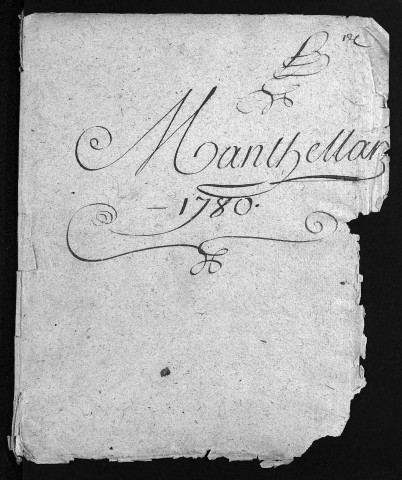 Manthellan
– 1780.